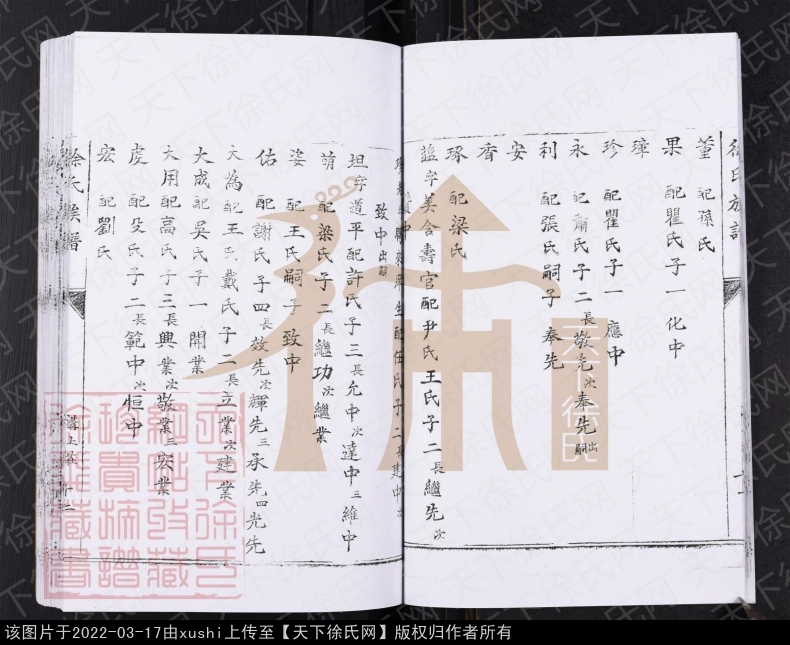 徐氏族譜
董 配孫氏
果 配瞿氏子一化中
璋
珍 配瞿氏子一應中
永 配 氏子二長敬先次奉先出嗣
利 配張氏嗣子奉先
安
香
琢 配梁氏
字美含壽官配尹氏王氏子二長繼先次
致中出嗣
坦字道平配許氏子三長允中次達中三維中
萌 配梁氏子二長繼功次繼業
姿 配王氏嗣子致中
佑 配謝氏子四長效先次輝先三承先四光先
大為配王氏戴氏子二長立業次建業
大成配吳氏子一開業
大用配高氏子三長興業次敬業三宏業
虔 配殳氏子二長範中次恒中
宏 配劉氏
徐氏族譜
天下徐氏
天下徐氏网
该图片于2022-03-17由xushi上传至【天下徐氏网】版权归作者所有